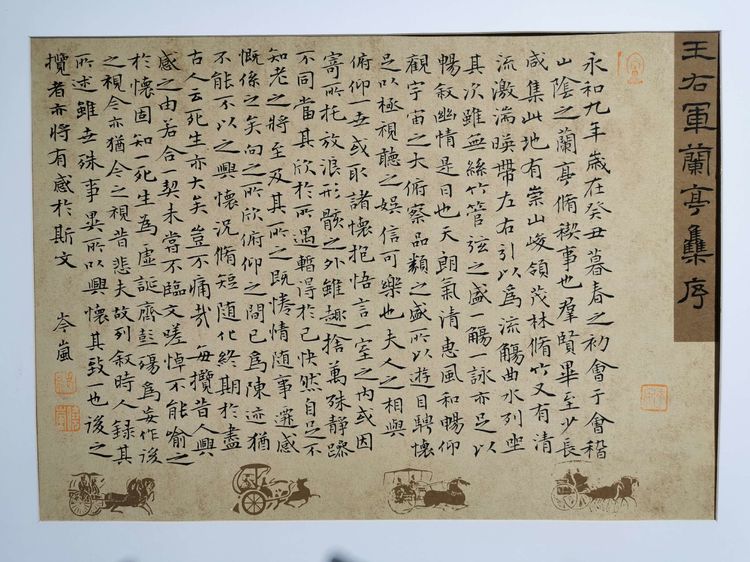 王右軍蘭亭雧序
永和九年歲在癸丑暮春之初會于會稽
山陰之蘭亭脩稧事也羣賢畢至少長
咸集此地有崇山峻領茂林脩竹又有清
流激湍暎帶左右引以爲流觴曲水列坐
其次雖無絲竹管弦之盛一觴一詠亦足以
暢敘幽情是日也天朗氣清惠風和暢仰
觀宇宙之大俯察品類之盛所以遊目騁懷
足以極視聽之娛信可樂也夫人之相與
俯仰一世或取諸懷抱悟言一室之內或因
寄所托放浪形骸之外雖趣捨萬殊靜躁
不同當其欣於所遇暫得於己快然自足不
知老之將至及其所之既惓情隨事遷感
慨係之矣向之所欣俯仰之間已爲陳迹猶
不能不以之興懷況脩短随化終期於盡
古人云死生亦大矣豈不痛哉每攬昔人興
感之由若合一契未嘗不臨文嗟悼不能喻之
於懷固知一死生爲虛誕齊彭殤爲妄作後
之視今亦猶今之視昔悲夫故列敘時人録其
所述雖世殊事異所以興懷其致一也後之
攬者亦將有感於斯文 岑嵐